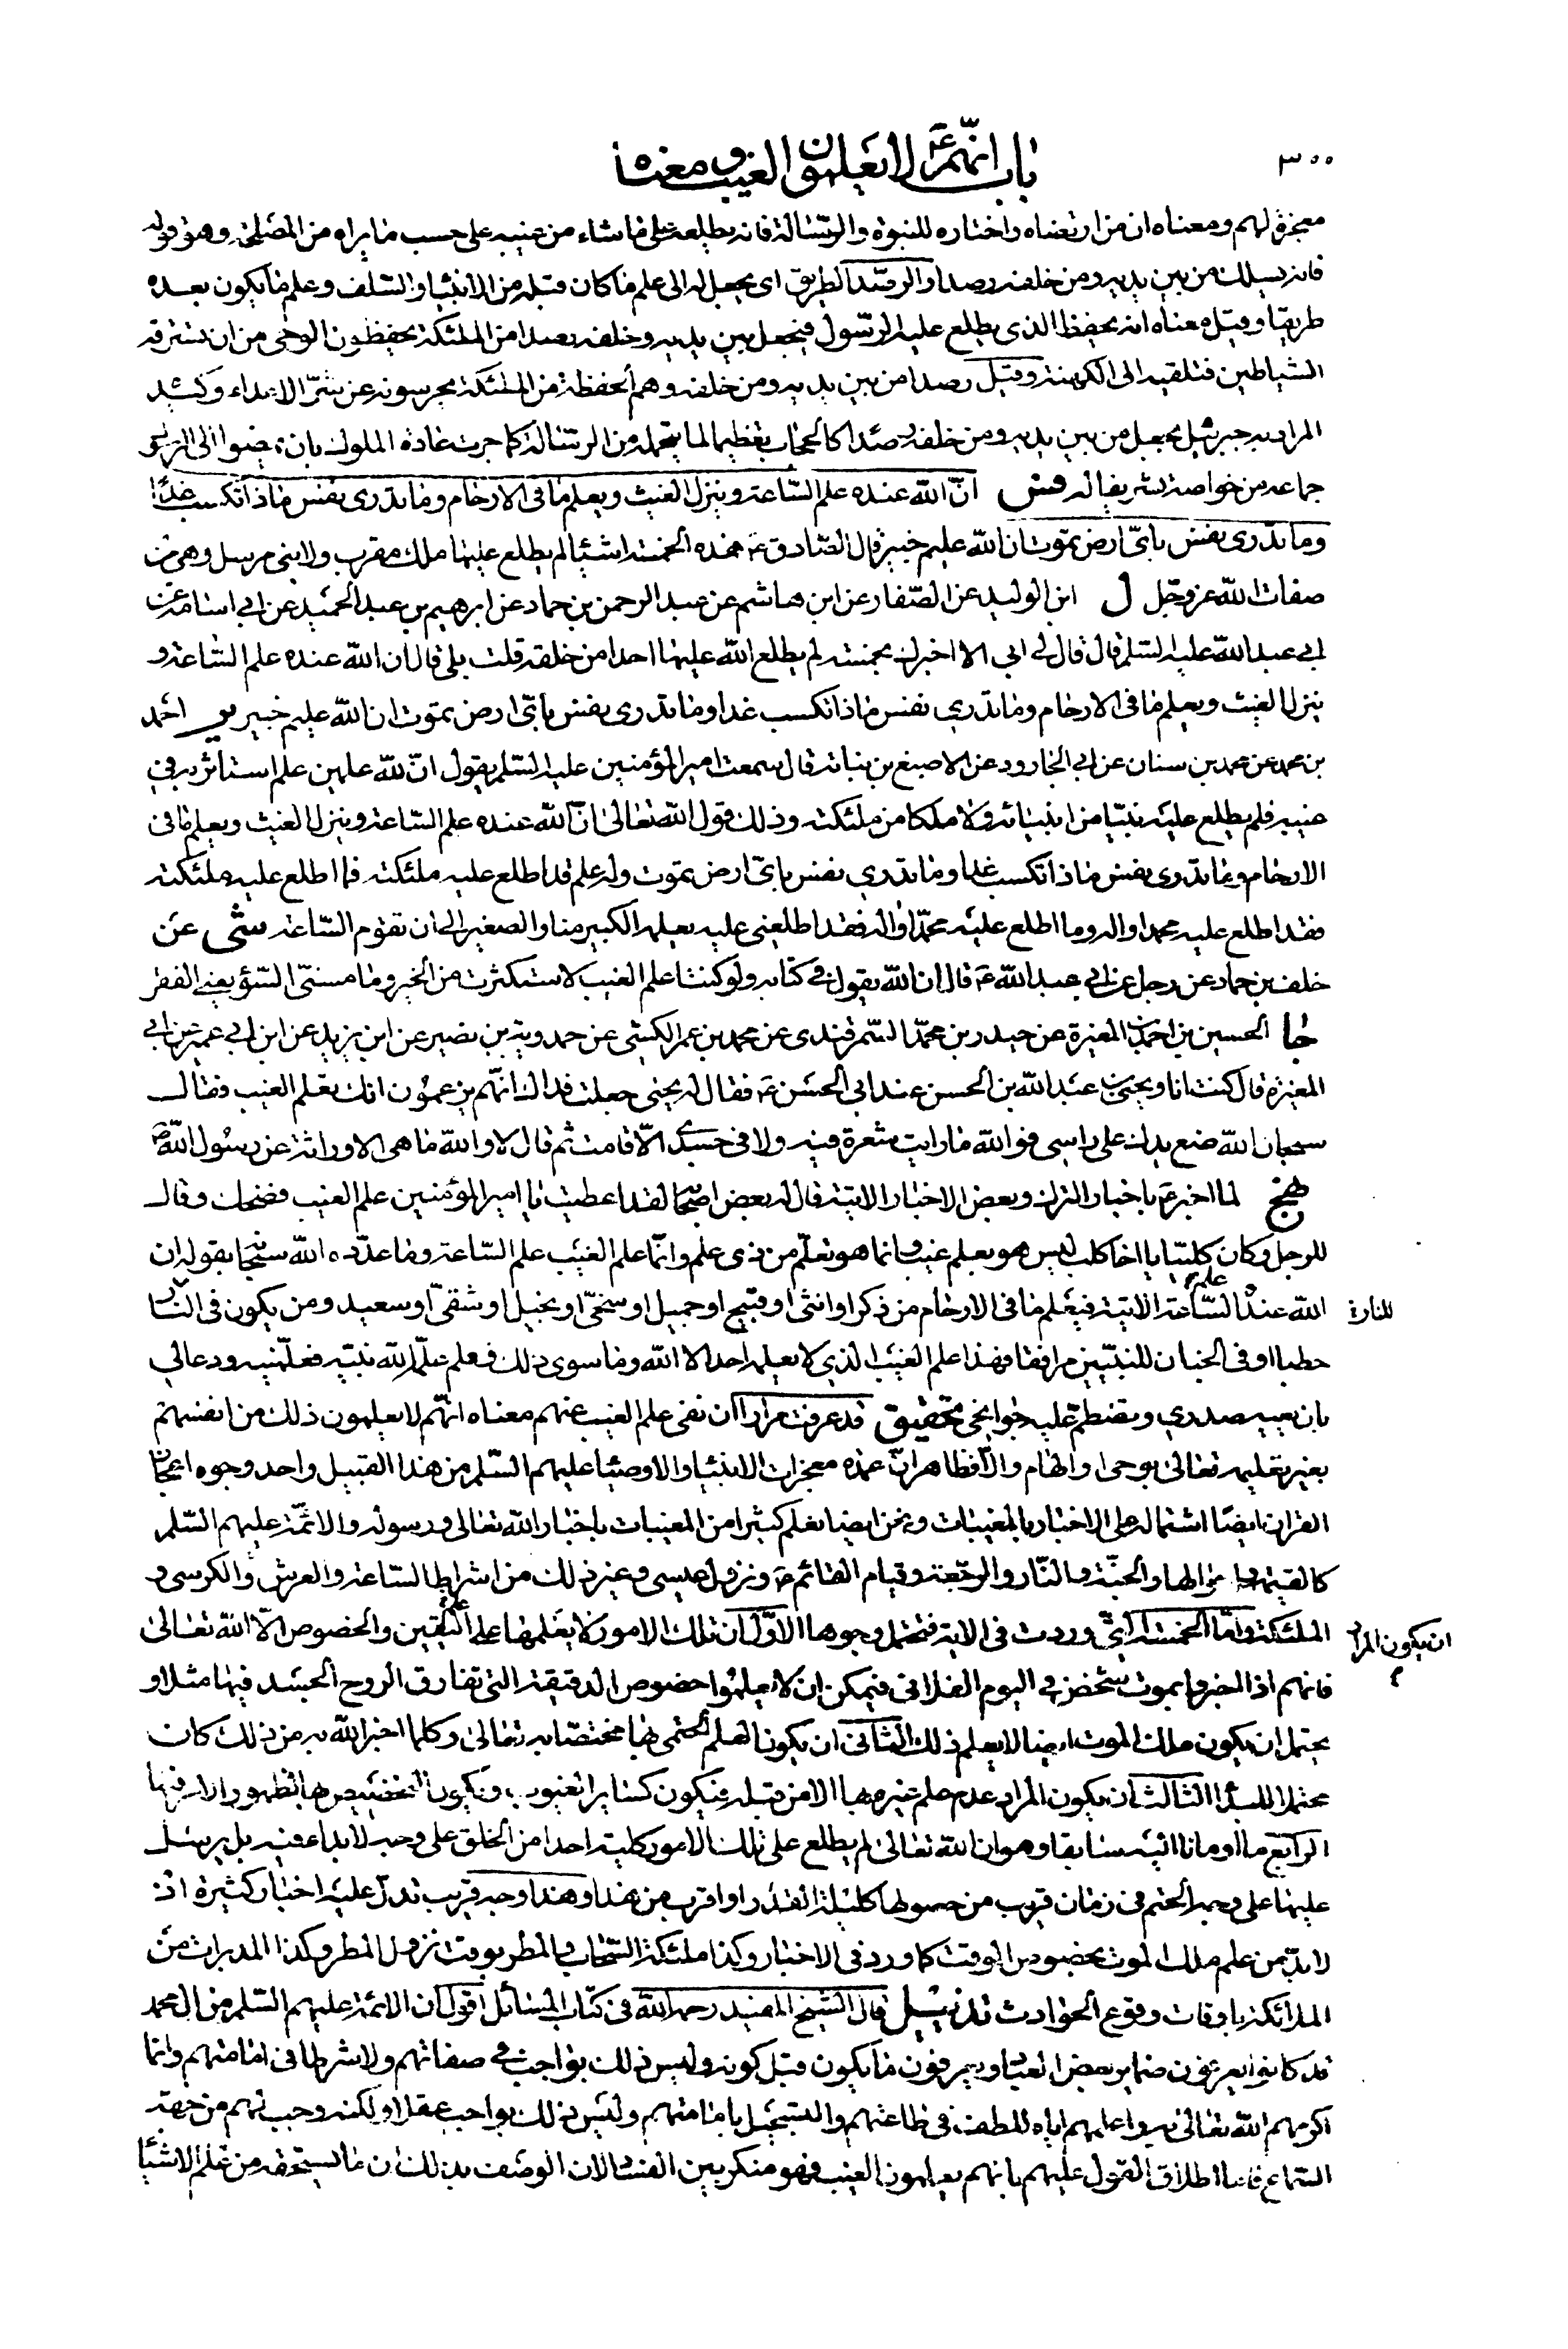 ٣٠٠
باب انّهم ع لا يعلمون الغيب و معناه
معجزة لهم ومعناه ان من ارتضاه واختاره للنبوة والرسالة فانه يطلعه على ما شاء من غيبه على حسب ما يراه من المصلحة وهو قوله
فانه يسلك من بين يديه ومن خلفه رصدا والرصد الطريق اى يجعل له الى علم ما كان قبله من الانبياء والسلف وعلم ما يكون بعده
طريقا وقيل معناه انه يحفظ الذى يطلع عليه الرسول فيجعل بين يديه وخلفه رصدا من الملئكة يحفظون الوحى من ان تسترقه
الشياطين فتلقيه الى الكهنة وقيل رصدا من بين يديه ومن خلفه وهم الحفظة من الملئكة يحرسونه عن شرّ الاعداء وكيد
المراد به جبرئيل يجعل من بين يديه ومن خلفه رصدا كالحجاب تعظيما لما يتحمله من الرسالة كما جرت عادة الملوك بان يضموا الى الرسول
جماعة من خواصه تشريفا له فس انّ الله عنده علم السّاعة وينزل الغيث ويعلم ما فى الارحام وما تدرى نفس ماذا تكسب غدًا
وما تدرى نفس باىّ ارض تموت ان الله عليم خبير قال الصّادق ع هذه الخمسة اشياء لم يطلع عليها ملك مقرب ولا نبى مرسل وهى من
صفات الله عز وجل ل ابن الوليد عن الصّفار عن ابن هاشم عن عبد الرحمن بن حماد عن ابرهيم بن عبد الحميد عن ابى اسامة عن
ابى عبد الله عليه السّلم قال قال لى ابى الا اخبرك بخمسة لم يطلع الله عليها احدا من خلقه قلت بلى قال ان الله عنده علم السّاعة و
ينزل الغيث ويعلم ما فى الارحام وما تدرى نفس ماذا تكسب غدا وما تدرى نفس باىّ ارض تموت ان الله عليم خبير ير احمد
بن محمد عن محمد بن سنان عن ابى الجارود عن الاصبغ بن نباتة قال سمعت امير المؤمنين عليه السّلم يقول انّ لله علمين علم استاثر به فى
غيبه فلم يطلع عليه نبيّا من انبيائه ولا ملكا من ملئكته وذلك قول الله تعالى انّ الله عنده علم السّاعة وينزل الغيث ويعلم ما فى
الارحام وما تدرى نفس ماذا تكسب غدا وما تدرى نفس باىّ ارض تموت وله علم قد اطلع عليه ملئكته فما اطلع عليه ملئكته
فقد اطلع عليه محمدا واله وما اطلع عليه محمّدا واله فقد اطلعنى عليه يعلمه الكبير منا والصغير الى ان تقوم السّاعة شى عن
خلف بن حماد عن رجل عن ابى عبد الله ع قال ان الله يقول فى كتابه ولو كنت اعلم الغيب لاستكثرت من الخير وما مسنى السّوء يعنى الفقر
جا الحسين بن احمد بن المغيرة عن حيدر بن محمّد السّمرقندى عن محمد بن عمر الكشى عن حمدويه بن نصير عن ابن يزيد عن ابن ابى عمير عن ابن
المغيرة قال كنت انا ويحيى بن عبد الله بن الحسن عند ابى الحسن ع فقال له يحيى جعلت فداك انّهم يزعمون انك تعلم الغيب فقال
سبحان الله ضع يدك على راسى فو الله ما رايت شعرة فيه ولا فى جسدى الّا قامت ثم قال لا والله ما هى الا وراثة عن رسول الله ص
نهج لما اخبر ع باخبار الترك وبعض الاخبار الاتية قال له بعض اصحابه لقد اعطيت يا امير المؤمنين علم الغيب فضحك وقال
للرجل وكان كلبيّا يا اخا كلب ليس هو بعلم غيب وانما هو تعلّم من ذى علم وانّما علم الغيب علم السّاعة وما عدّده الله سبحانه بقوله ان
الله عنده علم السّاعة الاية فيعلم ما فى الارحام من ذكر او انثى او قبيح او جميل او سخىّ او بخيل او شقىّ او سعيد ومن يكون فى النار للنار ة
حطبا او فى الجنان للنبيّين مرافقا فهذا علم الغيب الذى لا يعلمه احد الا الله وما سوى ذلك فعلم علّمه الله نبيّه فعلّمنيه ودعا لى
بان يعيه صدرى وتضطم عليه جوانحى تحقيق قد عرفت مرارا ان نفى علم الغيب عنهم معناه انّهم لا يعلمون ذلك من انفسهم
بغير تعليمه تعالى بوحى او الهام والّا فظاهر انّ عمدة معجزات الانبياء والاوصياء عليهم السّلم من هذا القبيل واحد وجوه اعجاز
القران ايضا اشتماله على الاخبار بالمغيبات ونحن ايضا نعلم كثيرا من المغيبات باخبار الله تعالى ورسوله والائمّة عليهم السّلم
كالقيمة واحوالها والجنّة والنّار والرجعة وقيام القائم ع ونزول عيسى وغير ذلك من اشراط السّاعة والعرش والكرسى و
الملئكة وامّا الخمسة الّتى وردت فى الاية فتحتمل وجوها الاوّل ان يكون المراد ان تلك الامور لا يعلمها على التعيين والخصوص الّا الله تعالى
فانهم اذا اخبروا بموت شخص فى اليوم الفلانى فيمكن ان لا يعلموا خصوص الدقيقة التى تفارق الروح الجسد فيها مثلا و
يحتمل ان يكون ملك الموت ايضا لا يعلم ذلك الثّانى ان يكون العلم الحتمى بها مختصّا به تعالى وكلما اخبر الله به من ذلك كان
محتملا للبداء الثالث ان يكون المراد عدم علم غيره بها الا من قبله فيكون كسائر الغيوب ويكون التخصيص بها لظهور الامر فيها
الرابع ما اومانا اليه سابقا وهو ان الله تعالى لم يطلع على تلك الامور كلية احدا من الخلق على وجه لا بداء فيه بل يرسل
عليها على وجه الحتم فى زمان قريب من حصولها كليلة القدر او اقرب من هذا وهذا وجه قريب تدل عليه اخبار كثيرة اذ
لا بدّ من علم ملك الموت بخصوص الوقت كما ورد فى الاخبار وكذا ملئكة السّحاب والمطر بوقت نزول المطر وكذا المدبرات من
الملائكة باوقات وقوع الحوادث تذييل قال الشّيخ المفيد رحمه الله فى كتاب المسائل اقول ان الائمة عليهم السّلم من ال محمد
قد كانوا يعرفون ضماير بعض العباد ويعرفون ما يكون قبل كونه وليس ذلك بواجب فى صفاتهم ولا شرطا فى امامتهم وانما
اكرمهم الله تعالى به واعلمهم اياه للطف فى طاعتهم والتسجيل بامامتهم وليس ذلك بواجب عقلا ولكنه وجب لهم من جهة
السّماع فاما اطلاق القول عليهم بانهم يعلمون الغيب فهو منكر بين الفساد لان الوصف بذلك ان ما يستحقه من علم الاشياء